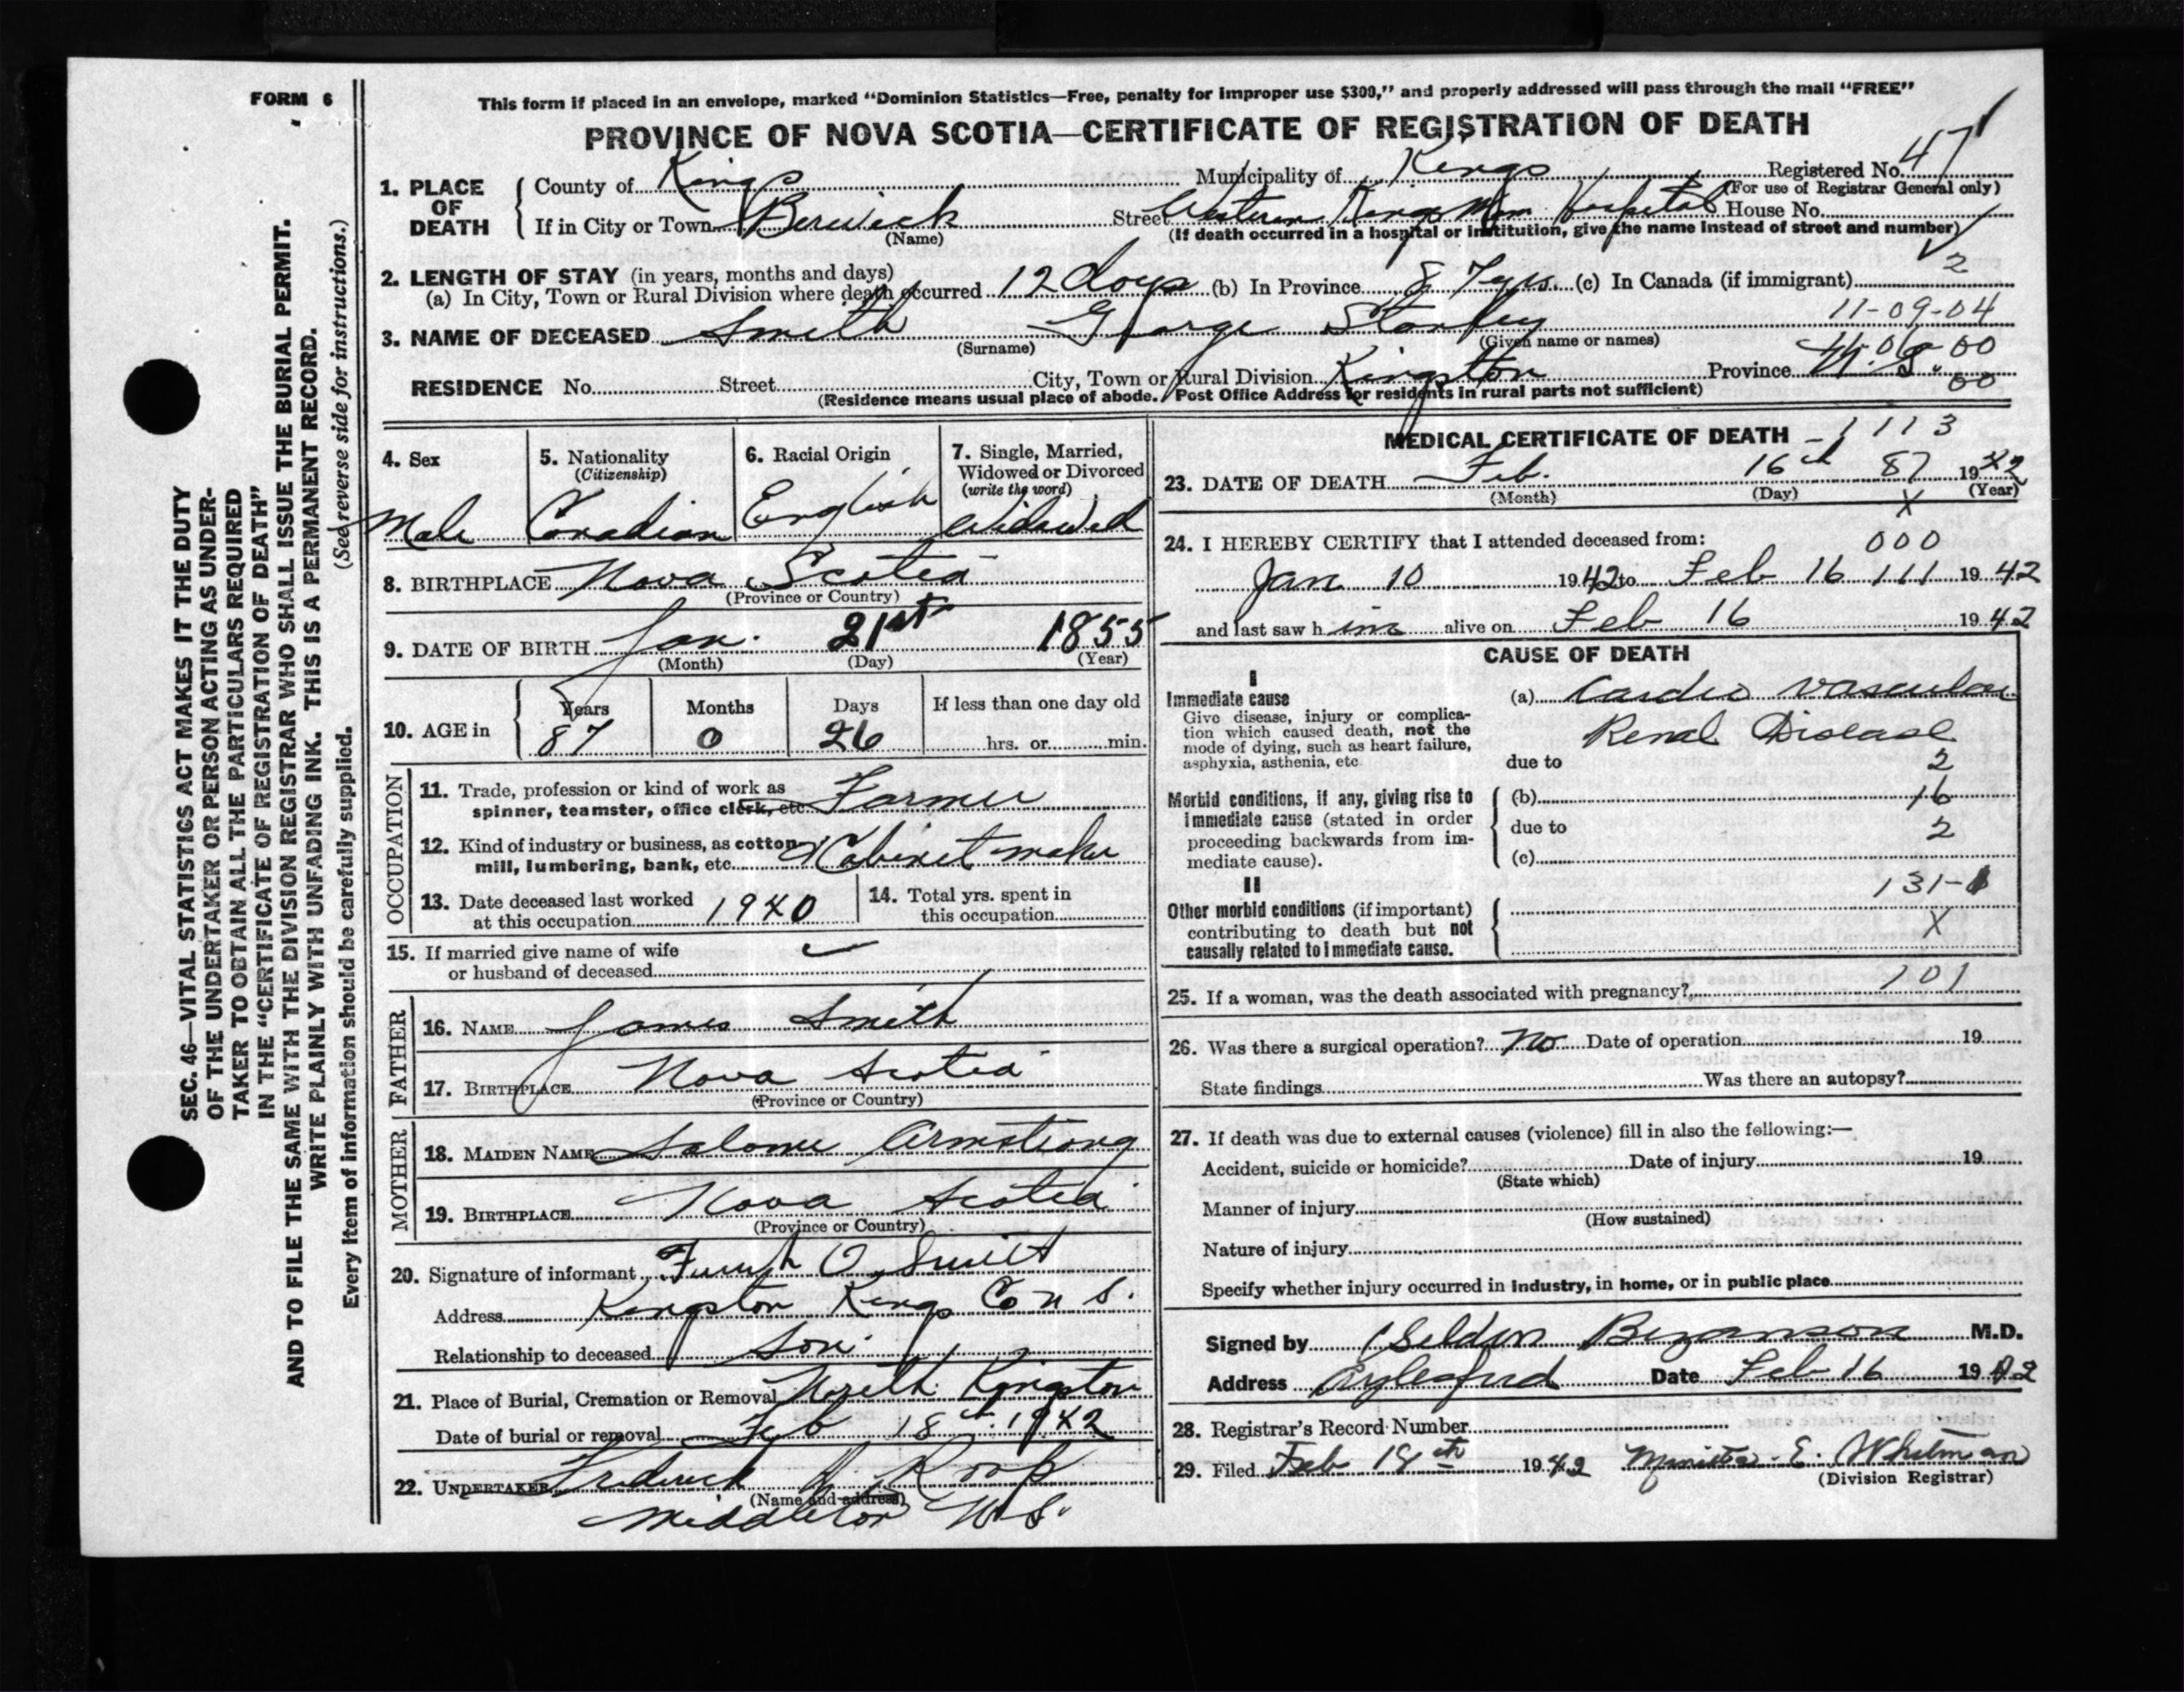 FORM 6
This form if placed in an envelope, marked “Dominion Statistics—Free, penalty for improper use $300,” and properly addressed will pass through the mail “FREE”
PROVINCE OF NOVA SCOTIA—CERTIFICATE OF REGISTRATION OF DEATH
1. PLACE OF DEATH
County of Kings Municipality of Kings Registered No. 47
(For use of Registrar General only)
If in City or Town Berwick Street Western Kings Mem Hospital House No.
(Name) (If death occurred in a hospital or institution, give the name instead of street and number)
2. LENGTH OF STAY (in years, months and days) 2
(a) In City, Town or Rural Division where death occurred 12 days (b) In Province 87 yrs. (c) In Canada (if immigrant)
11-09-04
3. NAME OF DECEASED Smith George Stanley
(Surname) (Given name or names)
RESIDENCE No. Street City, Town or Rural Division Kingston Province N.S.
00
(Residence means usual place of abode. Post Office Address for residents in rural parts not sufficient)
4. Sex
Male
5. Nationality
(Citizenship)
Canadian
6. Racial Origin
English
7. Single, Married,
Widowed or Divorced
(write the word)
Widowed
8. BIRTHPLACE Nova Scotia
(Province or Country)
9. DATE OF BIRTH Jan. 21st 1855
(Month) (Day) (Year)
10. AGE in
Years Months Days If less than one day old
87 0 26 hrs. or min.
OCCUPATION
11. Trade, profession or kind of work as
spinner, teamster, office clerk, etc. Farmer
12. Kind of industry or business, as cotton
mill, lumbering, bank, etc. Cabinet maker
13. Date deceased last worked
at this occupation 1940
14. Total yrs. spent in
this occupation
15. If married give name of wife
or husband of deceased
FATHER
16. NAME James Smith
17. BIRTHPLACE Nova Scotia
(Province or Country)
MOTHER
18. MAIDEN NAME Salome Armstrong
19. BIRTHPLACE Nova Scotia
(Province or Country)
20. Signature of informant O Smith
Address Kingston Kings Co N S.
Relationship to deceased Son
21. Place of Burial, Cremation or Removal North Kingston
Date of burial or removal Feb 18th 1942
22. UNDERTAKER Frederick Roop
(Name and address)
Middleton N.S.
MEDICAL CERTIFICATE OF DEATH - 1113
23. DATE OF DEATH Feb. 16th 87 1942
(Month) (Day) (Year)
X
24. I HEREBY CERTIFY that I attended deceased from:
000
Jan 10 1942 to Feb 16 111 1942
and last saw him alive on Feb 16 1942
CAUSE OF DEATH
I
Immediate cause
Give disease, injury or complica-
tion which caused death, not the
mode of dying, such as heart failure,
asphyxia, asthenia, etc
(a) Cardio vascular
Renal Disease
due to 2
Morbid conditions, if any, giving rise to
immediate cause (stated in order
proceeding backwards from im-
mediate cause).
(b) 16
due to 2
(c)
131-1
II
Other morbid conditions (if important)
contributing to death but not
causally related to immediate cause.
X
101
25. If a woman, was the death associated with pregnancy?
26. Was there a surgical operation? No Date of operation 19
State findings Was there an autopsy?
27. If death was due to external causes (violence) fill in also the following:—
Accident, suicide or homicide? Date of injury 19
(State which)
Manner of injury
(How sustained)
Nature of injury
Specify whether injury occurred in industry, in home, or in public place
Signed by Selden Bezanson M.D.
Address Aylesford Date Feb 16 1942
28. Registrar's Record Number
29. Filed Feb 18th 1942 E. Whitman
(Division Registrar)
SEC. 46—VITAL STATISTICS ACT MAKES IT THE DUTY
OF THE UNDERTAKER OR PERSON ACTING AS UNDER-
TAKER TO OBTAIN ALL THE PARTICULARS REQUIRED
IN THE “CERTIFICATE OF REGISTRATION OF DEATH”
AND TO FILE THE SAME WITH THE DIVISION REGISTRAR WHO SHALL ISSUE THE BURIAL PERMIT.
WRITE PLAINLY WITH UNFADING INK. THIS IS A PERMANENT RECORD.
(See reverse side for instructions.)
Every item of information should be carefully supplied.